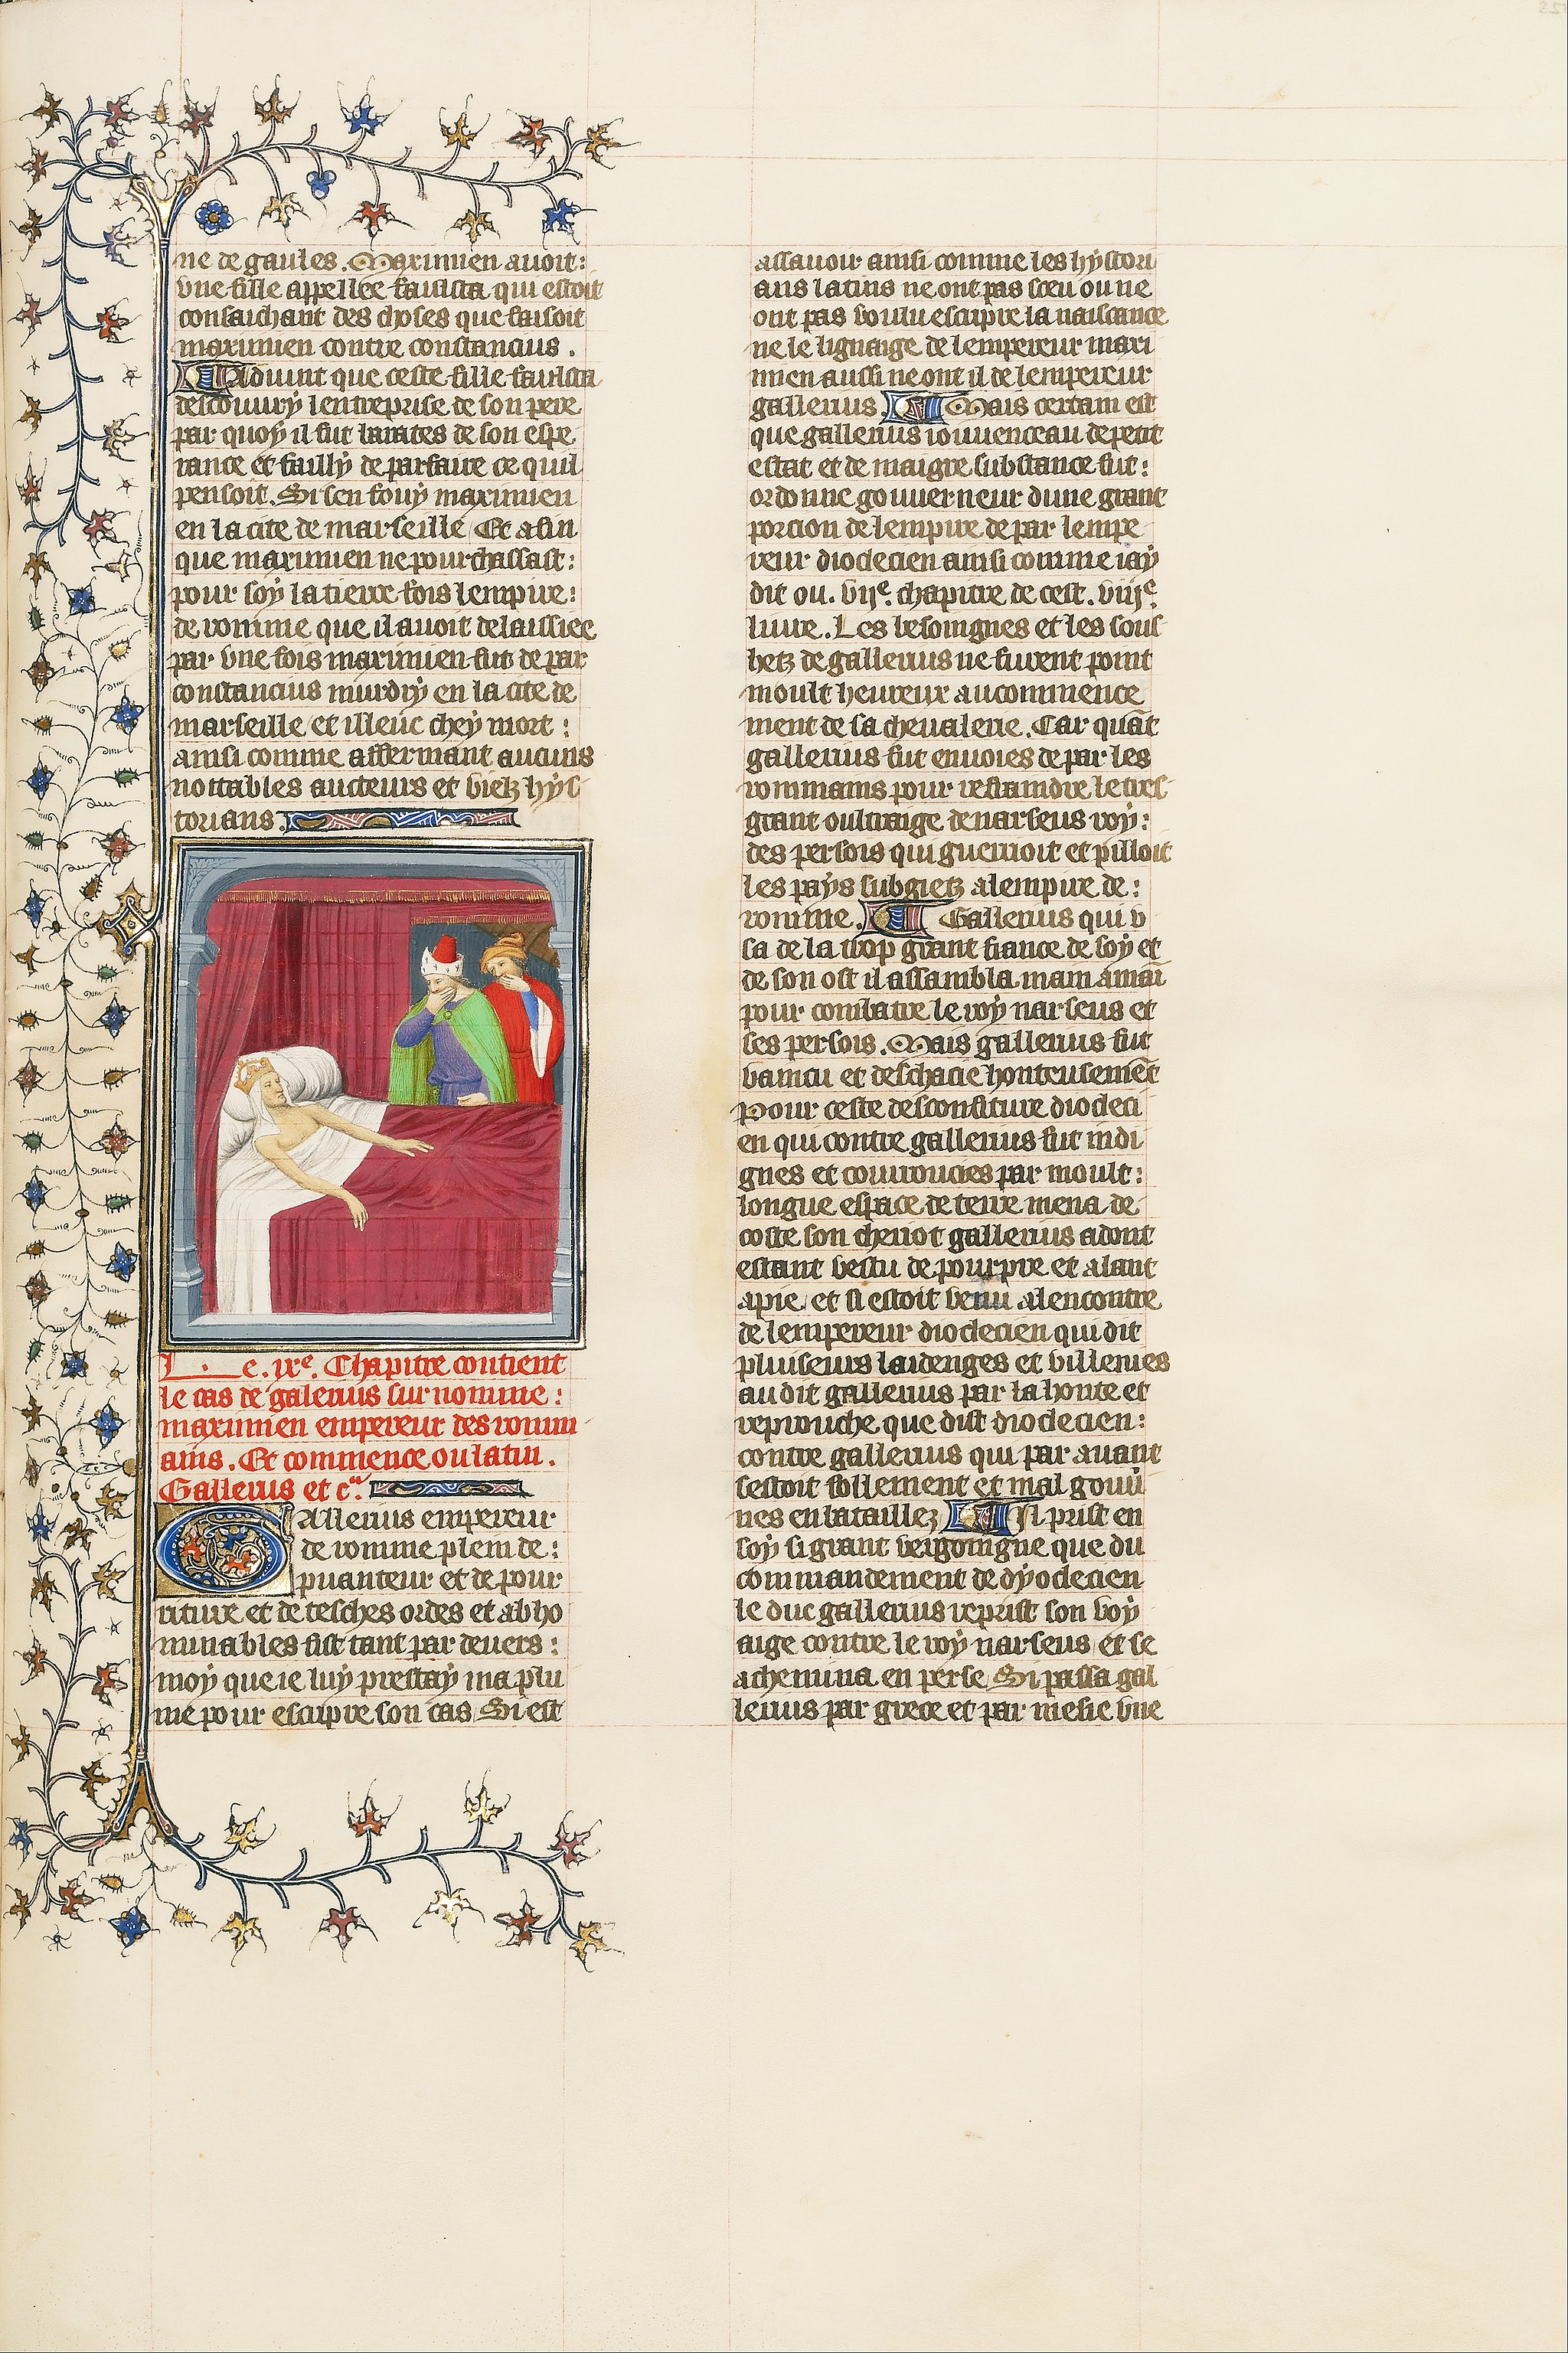 ne de gaules. Maximien auoit:
vne fille appellee fausta qui estoit
consaichant des choses que faisoit
maximien contre constancius.
Aduint que ceste fille fausta
descouury lentreprise de son pere
par quoy il fut baratés de son espe
rance et failly de parfaire ce quil
pensoit. Si sen fouy maximien
en la cite de marseille Et afin
que maximien ne pourchassast:
pour soy la tierce fois lempire:
de romme que il auoit delaissiee
par vne fois maximien fut de par
constancius murdry en la cite de
marseille et illeuc chey mort:
ainsi comme afferment aucuns
nottables aucteurs et vielz hys
torians.
Le .ixe. Chapitre contient
le cas de galerius surnomme:
maximien empereur des romm
ains. Et commence ou latin.
Gallerius et ca.
Gallerius empereur
de romme plein de:
puanteur et de pour
riture et de tesches ordes et abho
minables fist tant par deuers:
moy que ie luy prestay ma plu
me pour escripre son cas Si est
assauoir ainsi comme les hystori
ans latins ne ont pas sceu ou ne
ont pas voulu escripre la naissance
ne le lignaige de lempereur maxi
mien aussi ne ont il de lempereur
gallerius Mais certain est
que gallerius iouuenceau de petit
estat et de maigre substance fut:
ordonne gouuerneur dune grant
porcion de lempire de par lempe
reur dioclecien ainsi comme iay
dit ou. viie. chapitre de cest. viiie.
liure. Les besoingnes et les souf
hetz de gallerius ne furent point
moult heureux au commence
ment de sa cheualerie. Car quãt
gallerius fut enuoies de par les
rommains pour refraindre le tres
grant oultraige de narseus roy:
des persois qui guerrioit et pilloit
les pays subgietz a lempire de:
romme. Gallerius qui v
sa de la trop grant fiance de soy et
de son ost il assambla main a mai
pour combatre le roy narseus et
ses persois. Mais gallerius fut
vaincu et deschacie honteusemẽt
Pour ceste desconfiture diocleci
en qui contre gallerius fut indi
gnes et courroucies par moult:
longue espace de terre mena de
coste son cheriot gallerius adont
estant vestu de pourpre et alant
a pie, et si estoit venu a lencontre
de lempereur dioclecien qui dit
pluiseurs laidenges et villenies
au dit gallerius par la honte et
reprouche que dist dioclecien:
contre gallerius qui par auant
sestoit follement et mal gouu
nes en bataillez Il prist en
soy si grant vergoingne que du
commandement de dyoclecien
le duc gallerius reprist son voy
aige contre le roy narseus et se
achemina en perse Si passa gal
lerius par grece et par mesie vne